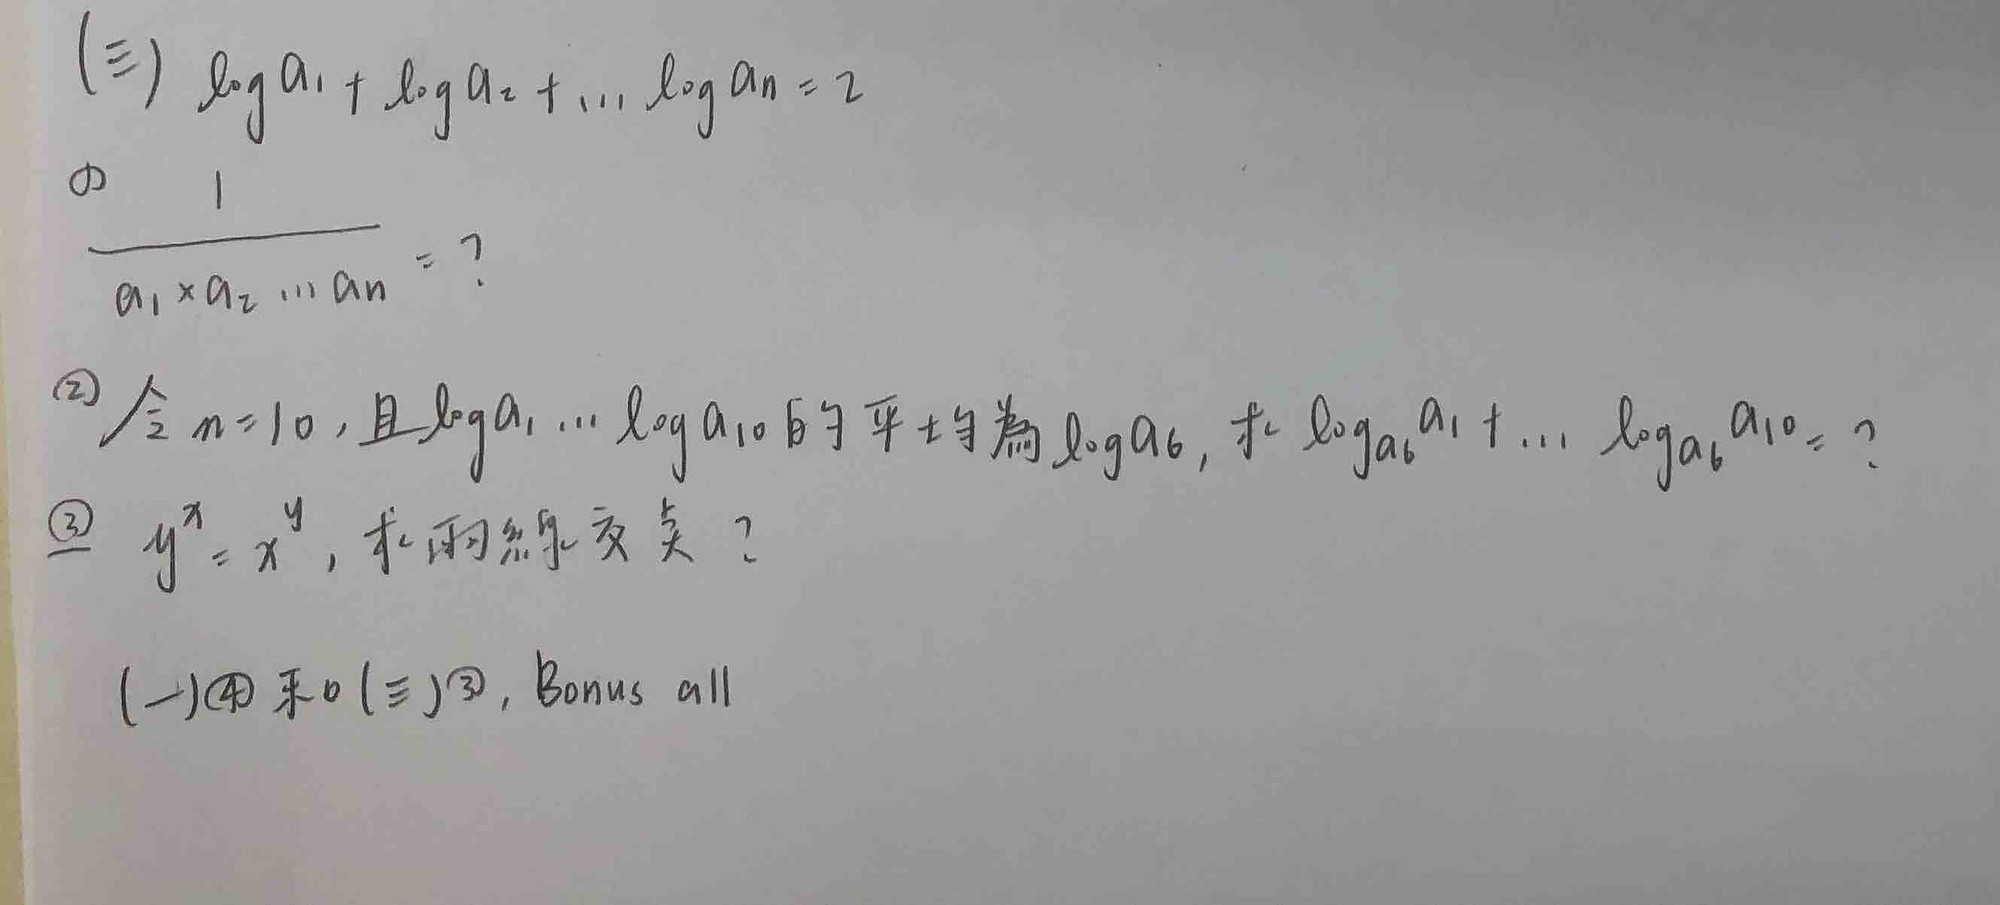 (三) log a₁ + log a₂ + ... log aₙ = 2
① 1
a₁ × a₂ ... aₙ = ?
② 令 n = 10, 且 log a₁ ... log a₁₀ 的平均為 log a₆, 求 log_{a₆} a₁ + ... log_{a₆} a₁₀ = ?
③ yˣ = x^y, 求兩線交点?
(一)④ 和 (三)③, Bonus all